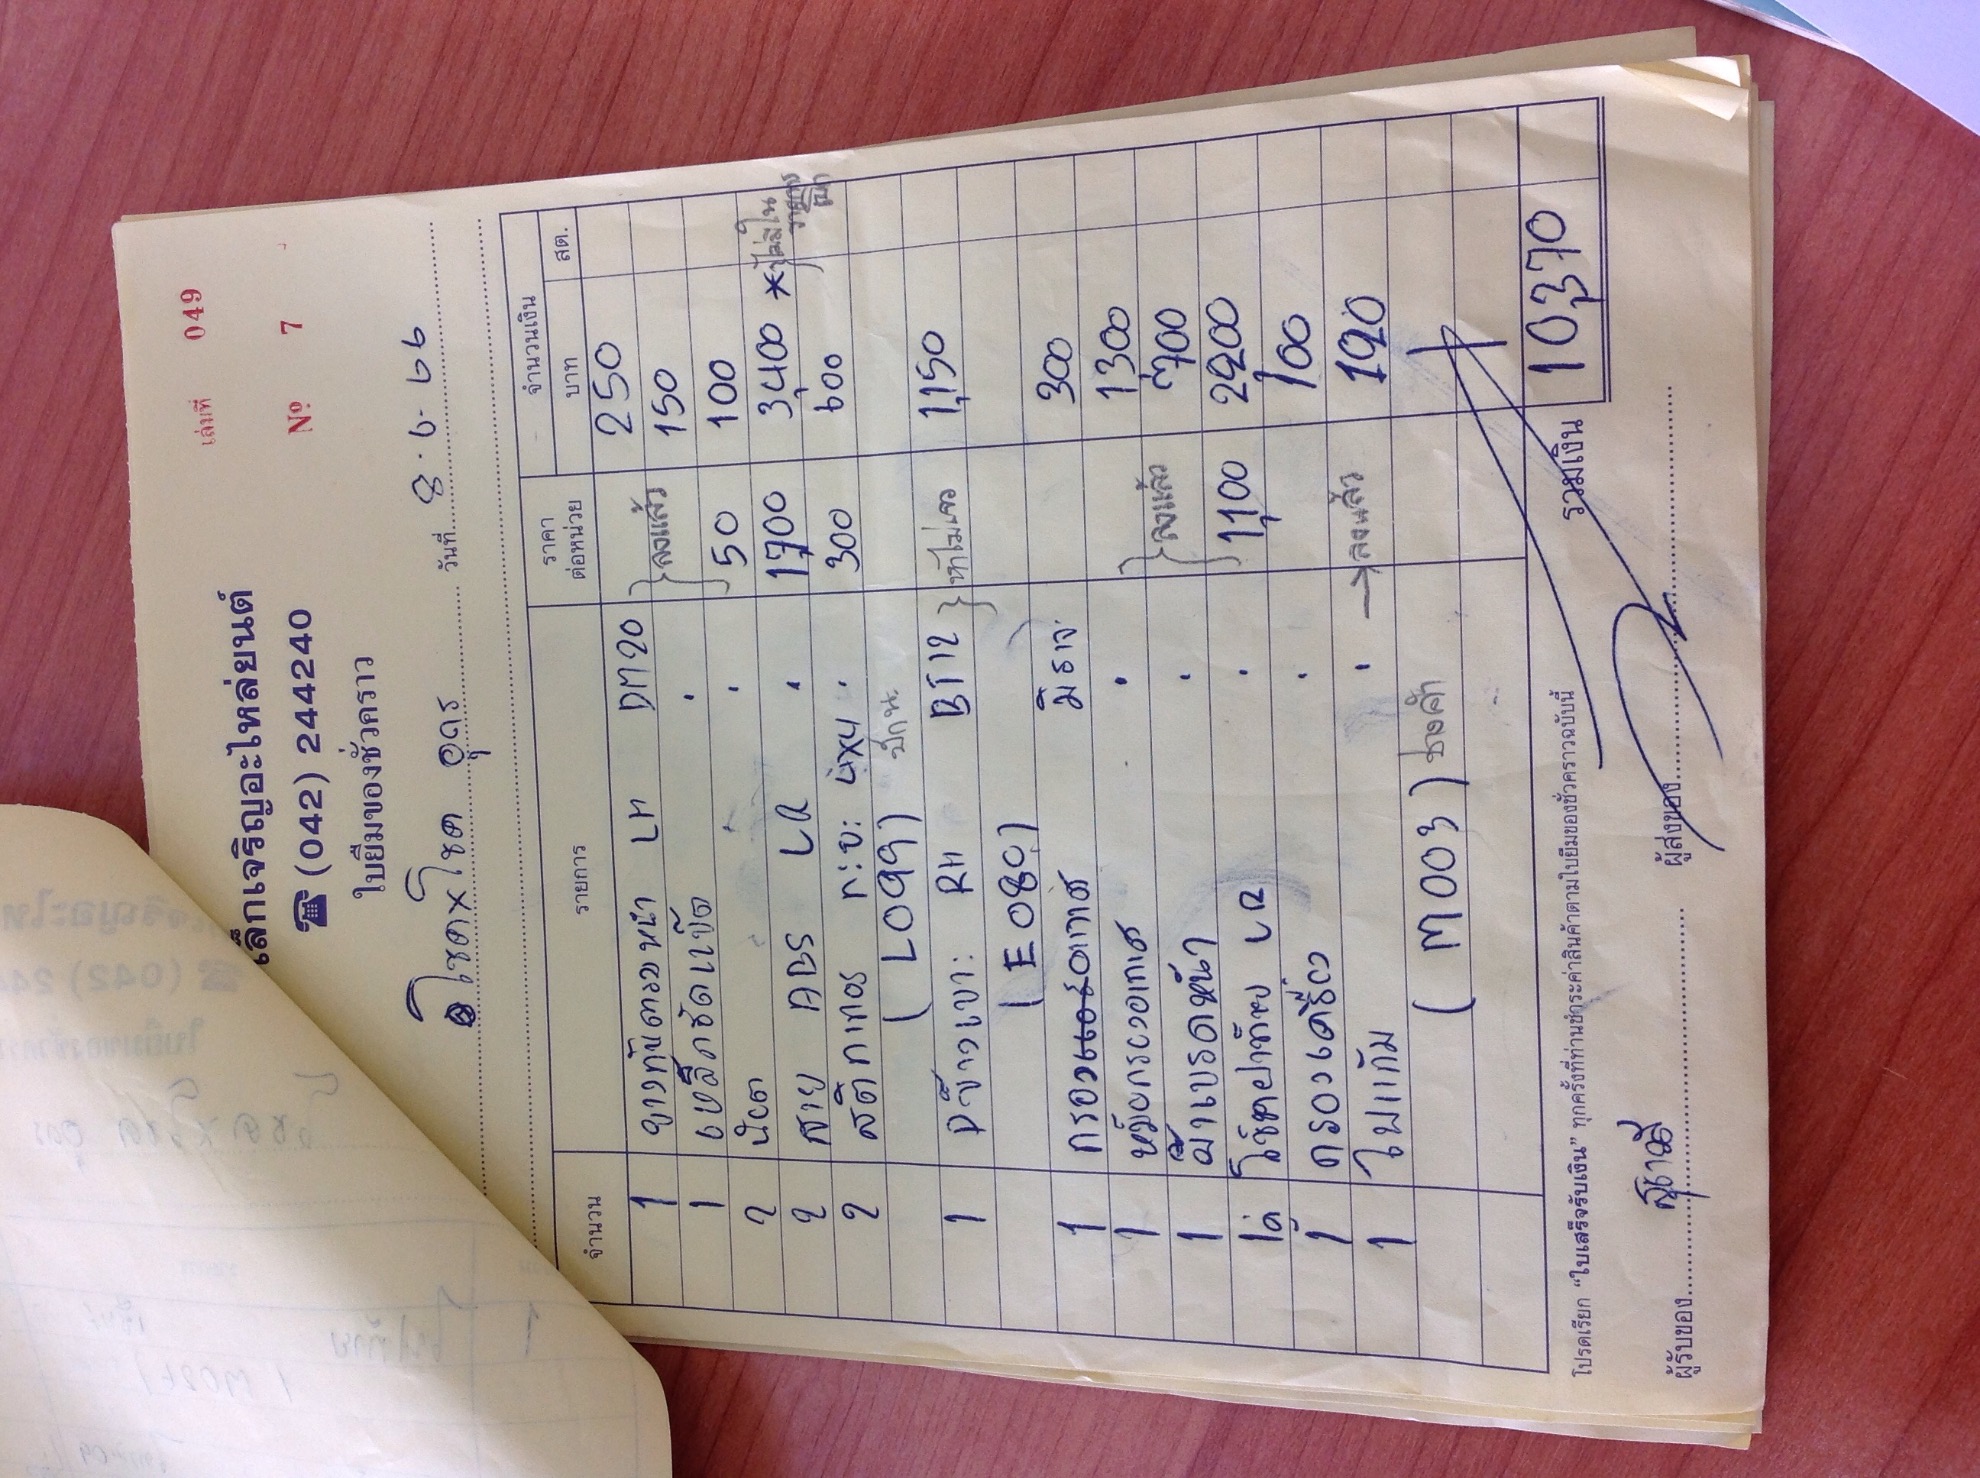 เล่มที่ 049
เล็กเจริญอะไหล่ยนต์
☎ (042) 244240
Nº 7
ใบยืมของชั่วคราว
โชค×โชค อุดร วันที่ 8.6.66
จำนวน รายการ ราคาต่อหน่วย จำนวนเงิน
บาท สต.
1 ยางกันตรงหน้า LH DM20 250
1 เหล็กรัดแป๊ด " } ลงแล้ว 150
2 น๊อต " 50 100
2 สาย ABS LR " 1700 3,400 * ไม่มีใน
2 สติกเกอร์ ก:บ: 4x4 " 300 600
(L099) ปีกนะ
1 คิ้วยางเบา: RH BT12 } หาไม่เจอ 1,150
(E080)
1 กรองอากาศ มิราจ 300
1 หม้อกรองอากาศ " 1300
1 ผ้าเบรคหน้า " } ลงแล้ว 700
1คู่ โช๊คฝาท้าย LR " 1,100 2200
1 กรองเครื่อง " 100
1 ใบแก้ม " → ลงแล้ว 120
(M003) ช่างคำ
รวมเงิน 10,370
โปรดเรียก "ใบเสร็จรับเงิน" ทุกครั้งที่ท่านชำระค่าสินค้าตามใบยืมของชั่วคราวฉบับนี้
ผู้รับของ สุชาวดี ผู้ส่งของ